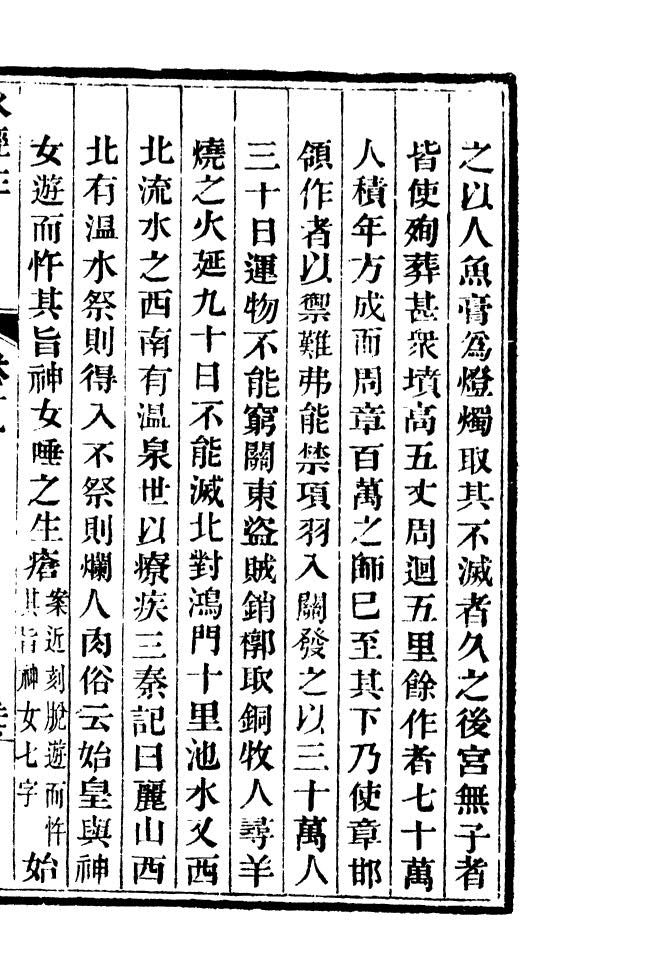 之以人魚膏爲燈燭取其不滅者久之後宮無子者
皆使殉葬甚衆墳高五丈周迴五里餘作者七十萬
人積年方成而周章百萬之師已至其下乃使章邯
領作者以禦難弗能禁項羽入關發之以三十萬人
三十日運物不能窮關東盜賊銷槨取銅牧人尋羊
燒之火延九十日不能滅北對鴻門十里池水又西
北流水之西南有温泉世以療疾三秦記曰麗山西
北有温水祭則得入不祭則爛人肉俗云始皇與神
女遊而忤其旨神女唾之生瘡案近刻脫遊而忤其旨神女七字始
水經注